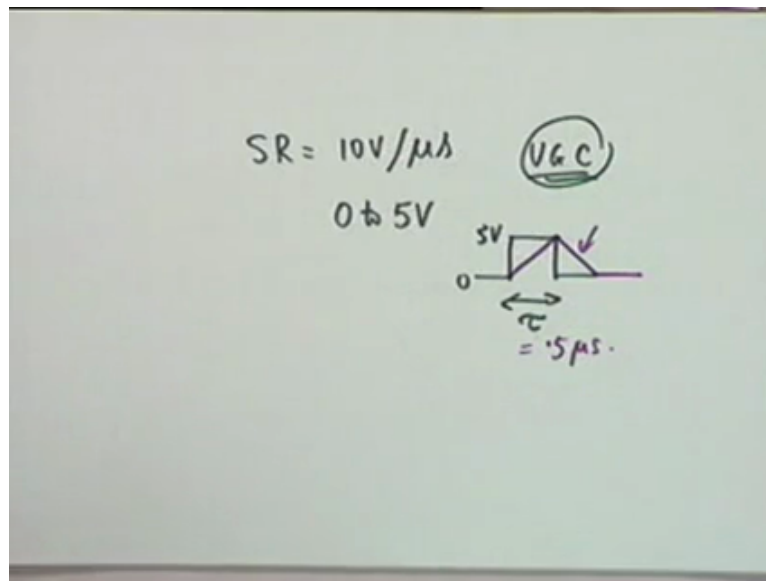 SR = 10V/μs
VGC
0 to 5V
5V
0
τ
= .5 μs.